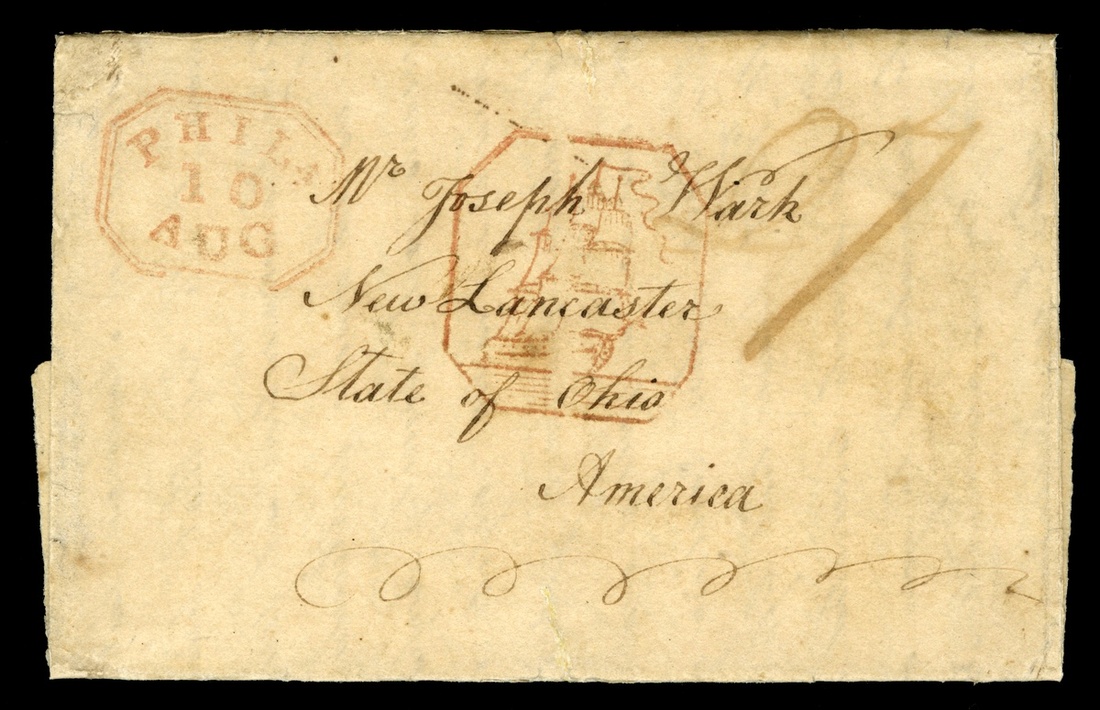 PHILA
10
AUG
27
Mr Joseph Wark
New Lancaster
State of Ohio
America